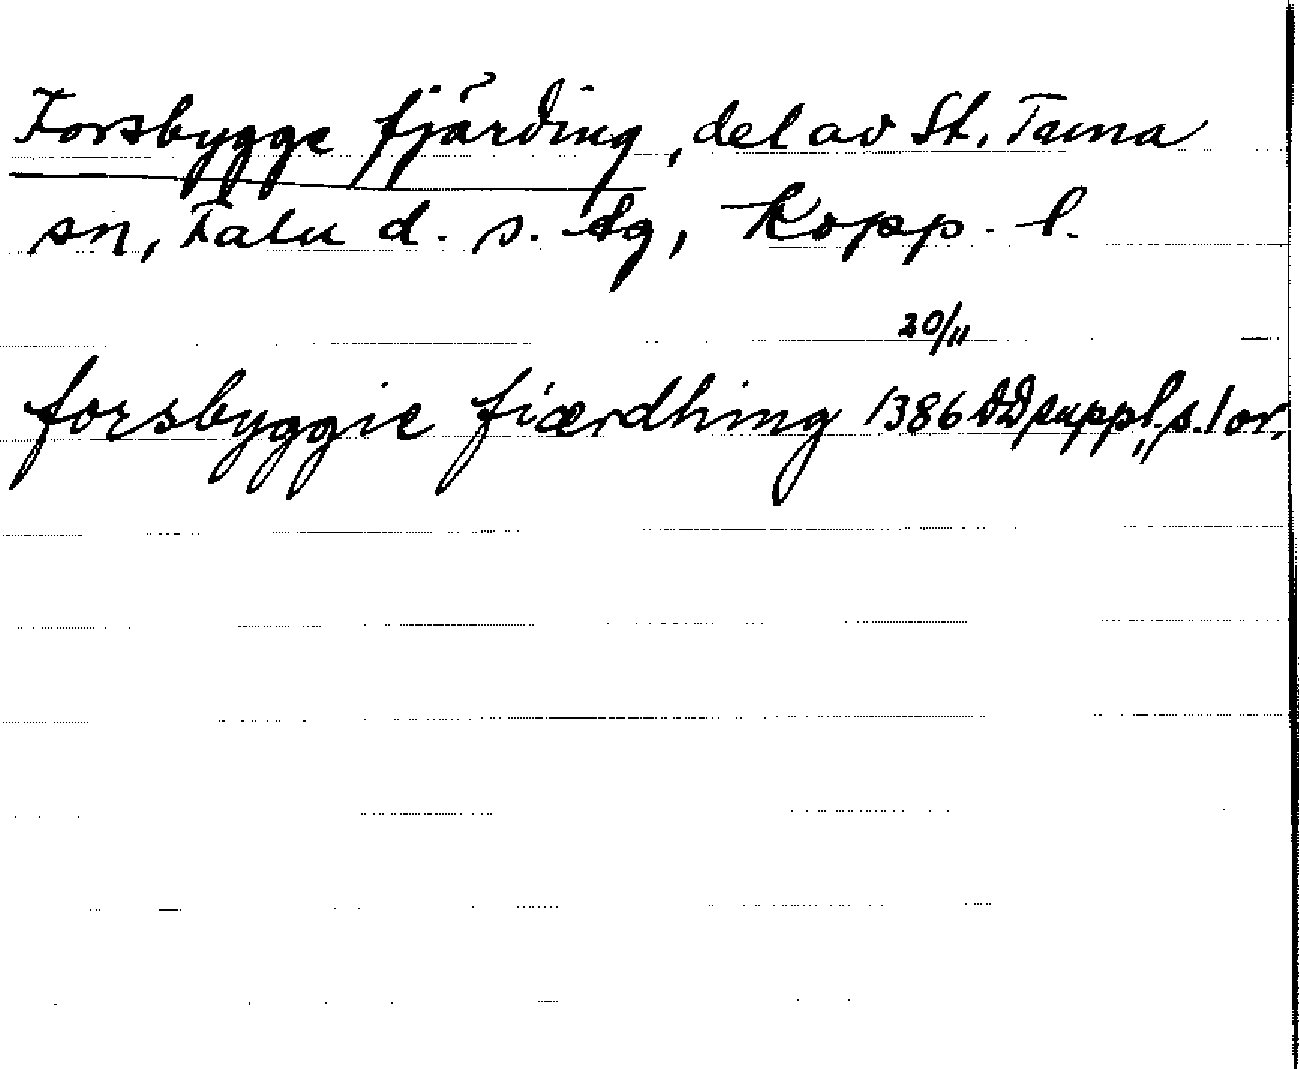 Forsbygge fjärding, del av St. Tuna
sn, Falu d. s. tg, Kopp. l.
20/11
forsbyggie fiærdhing 1386 DD suppl., s. 1 or.